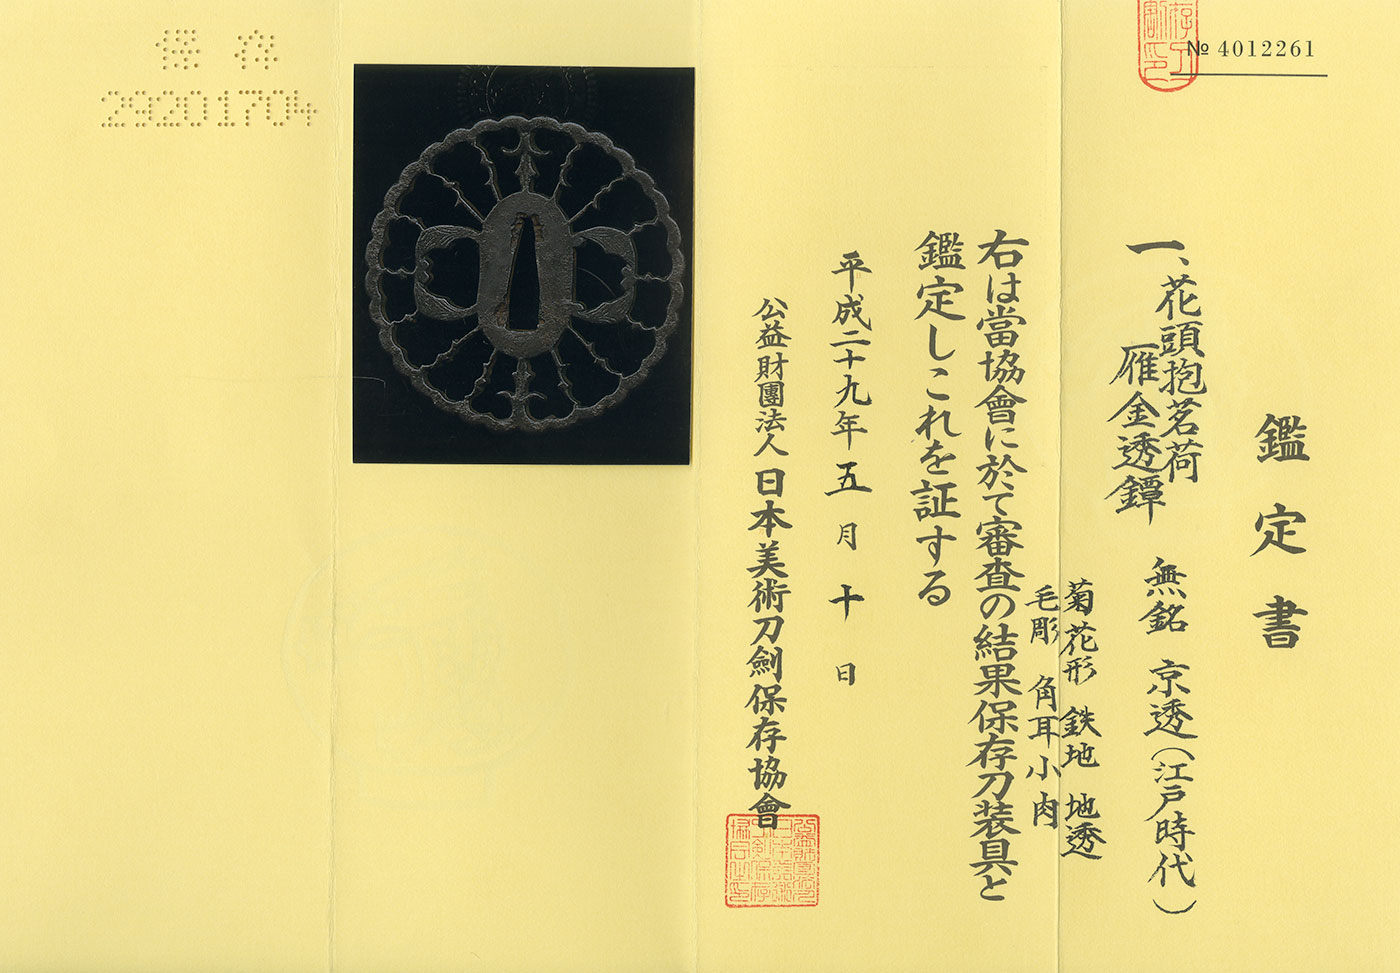 № 4012261
鑑定書
一、花頭抱茗荷
雁金透鐔 無銘 京透(江戸時代)
菊花形 鉄地 地透
毛彫 角耳小肉
右は當協會に於て審査の結果保存刀装具と
鑑定しこれを証する
平成二十九年五月十日
公益財團法人 日本美術刀劍保存協會
保存
29201704